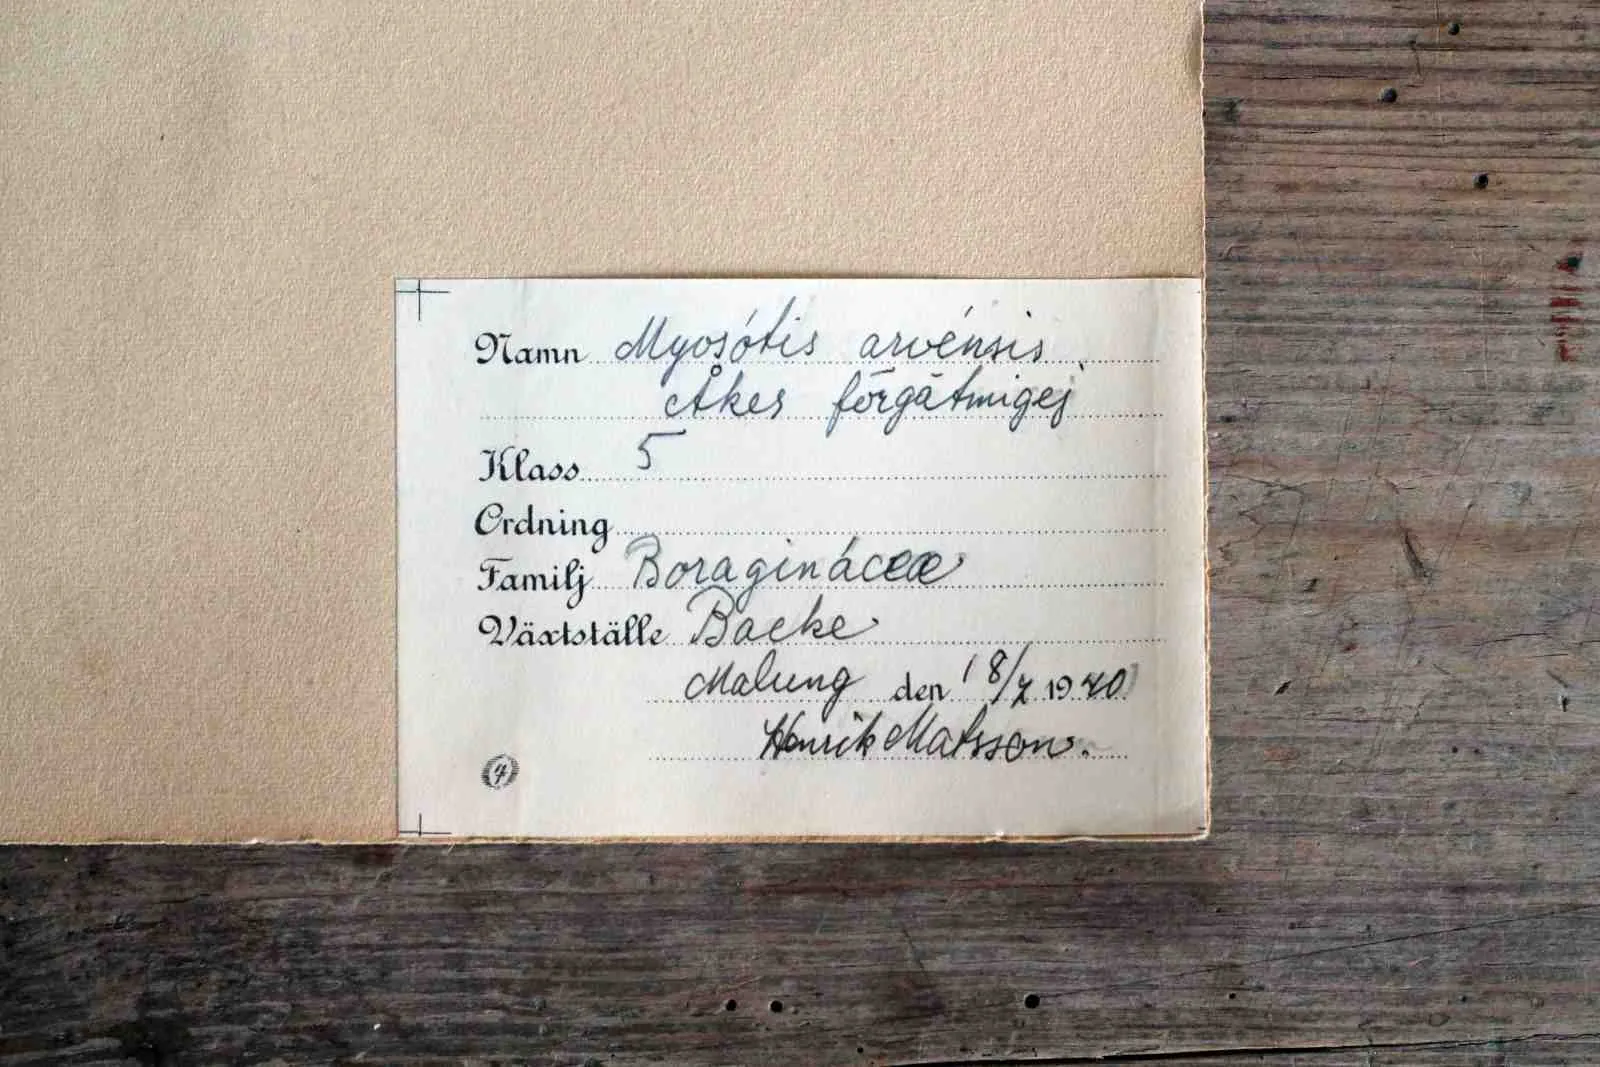 Namn Myosótis arvénsis
Åker förgätmigej
Klass 5
Ordning
Familj Boragináceæ
Växtställe Backe
Malung den 18/7 1940
Henrik Matsson.
4